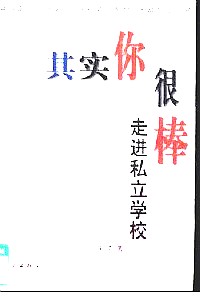 其实你很棒
走进私立学校